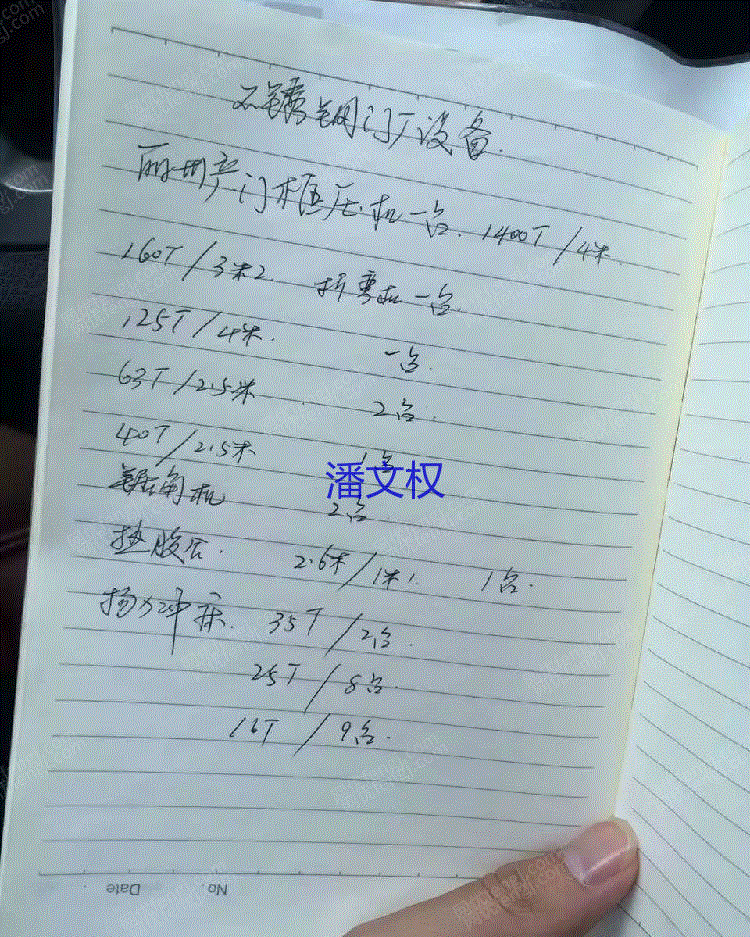 不锈钢门厂设备.
门框压机一台. 1400T/4米
160T/3米2 折弯机一台.
125T/4米. 一台.
63T/2.5米 2台.
40T/2.5米 1台
锯角机 2台
2.6米/1米1 1台.
冲床. 35T/2台.
25T/8台.
16T/9台.
潘文权
No.
Date